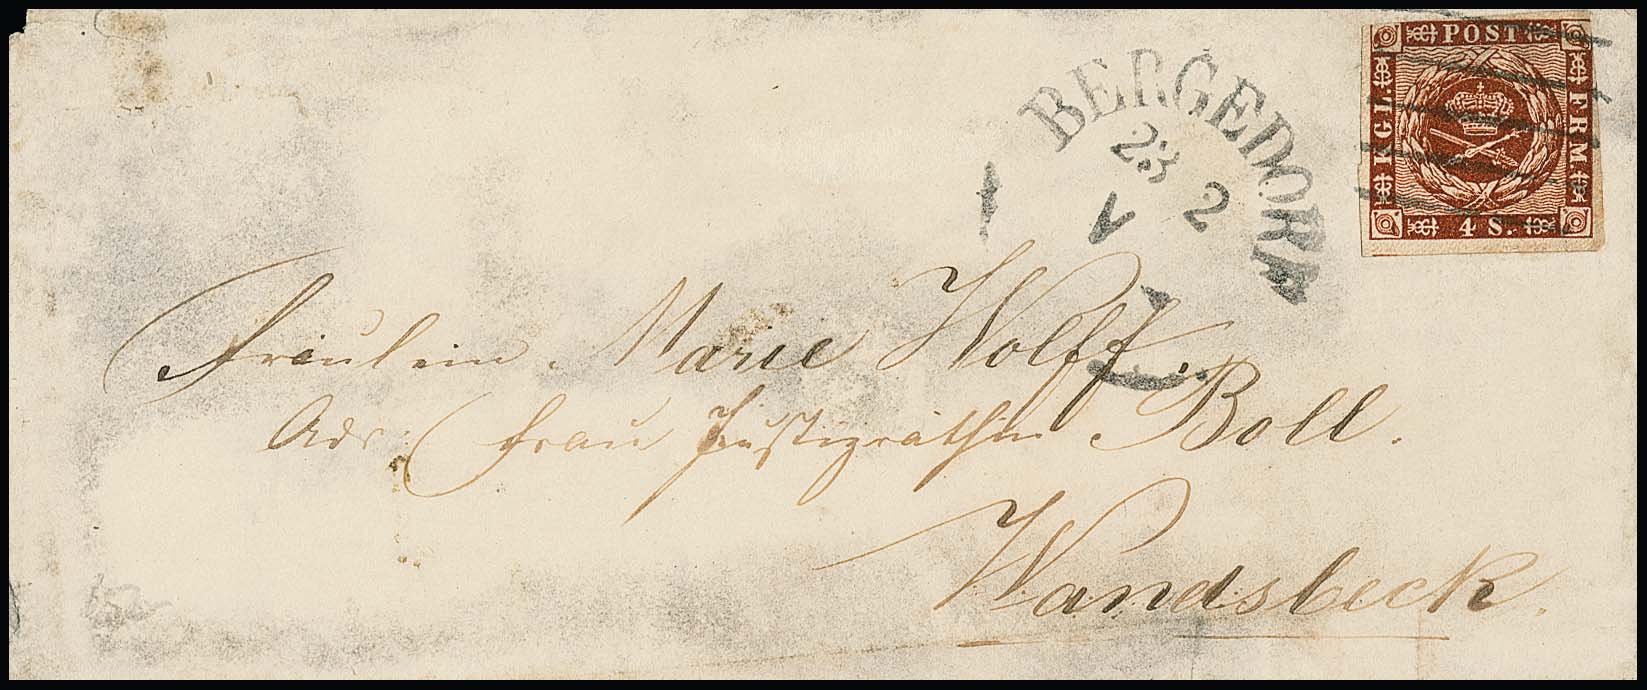 POST
KGL.
FRM
4 S.
BERGEDORF
23 2
V
Fräulein Marie Wolff.
Adr: Frau Justizräthin Boll.
Wandsbeck.